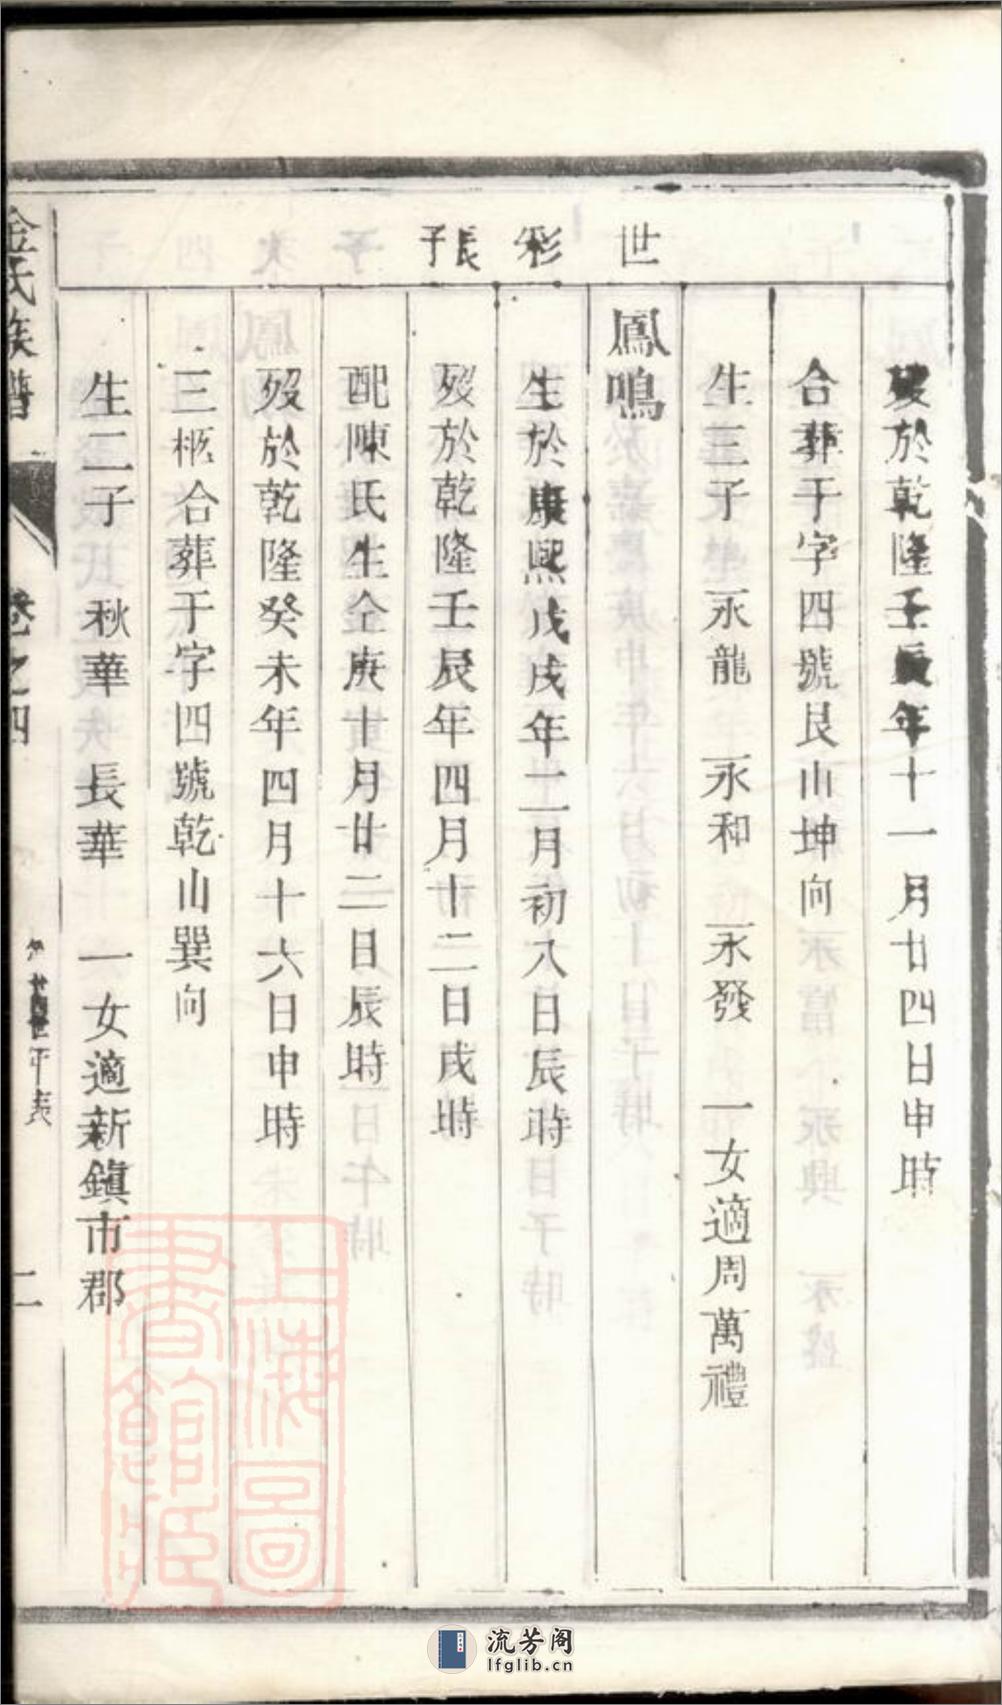 世彩長子
歿於乾隆壬辰年十一月廿四日申時
合葬于字四號艮山坤向
生三子 永龍 永和 永發 一女適周萬禮
鳳鳴
生於康熙戊戌年二月初八日辰時
歿於乾隆壬辰年四月十二日戌時
配陳氏生仝庚十月廿二日辰時
歿於乾隆癸未年四月十六日申時
三柩合葬于字四號乾山巽向
生二子 秋華 長華 一女適新鎮市郡
金氏族譜 卷之四 二
上海圖書館藏
流芳阁
lfglib.cn